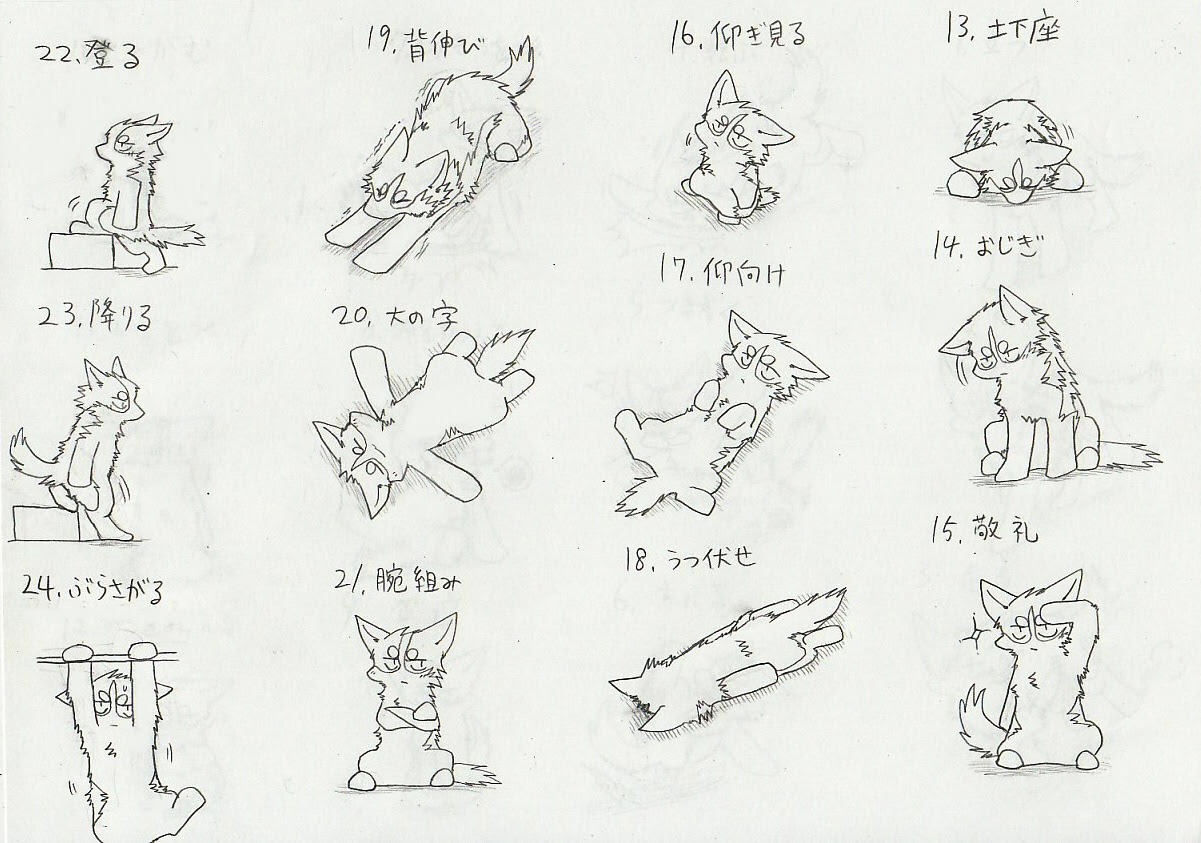 13. 土下座
14. おじぎ
15. 敬礼
16. 仰ぎ見る
17. 仰向け
18. うつ伏せ
19. 背伸び
20. 大の字
21. 腕組み
22. 登る
23. 降りる
24. ぶらさがる